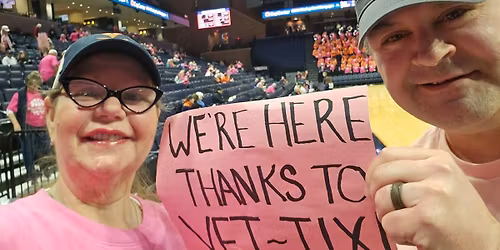 WE'RE HERE
THANKS TO
VET~TIX!